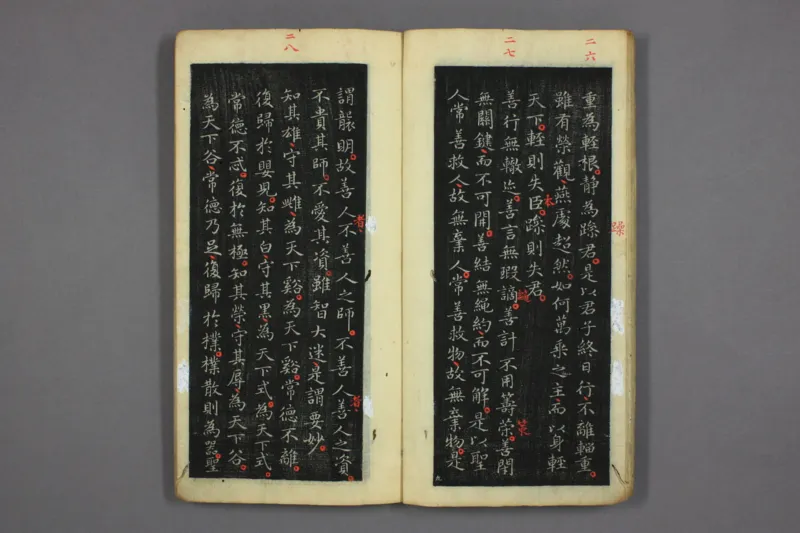 二六
重為輕根。静為躁君。是以君子終日行、不離輜重。
躁
雖有榮觀、燕處超然。如何萬乘之主、而以身輕
天下。輕則失臣。躁則失君。
本
二七
善行無轍迹。善言無瑕謫。善計不用籌策。善閉
策
無關鍵、而不可開。善結無繩約、而不可解。是以聖
人常善救人、故無棄人。常善救物、故無棄物。是
九
謂襲明。故善人不善人之師。不善人善人之資。
者
者
不貴其師。不愛其資。雖智大迷、是謂要妙。
二八
知其雄、守其雌、為天下谿。為天下谿。常德不離。
復歸於嬰兒。知其白、守其黑為天下式。為天下式。
常德不忒。復於無極。知其榮、守其辱、為天下谷。
為天下谷、常德乃足、復歸於樸。樸散則為器聖